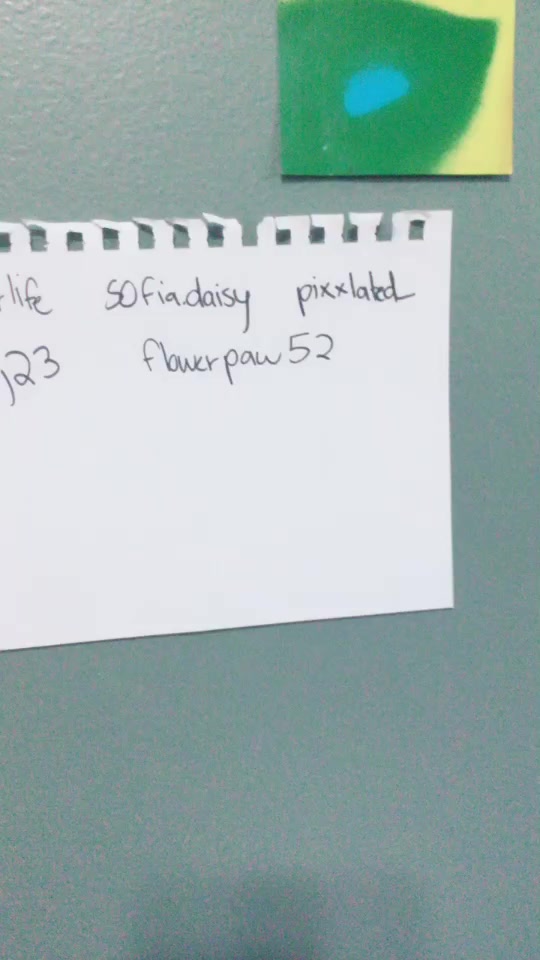 life sofia.daisy pixxlated
123 flowerpaw52